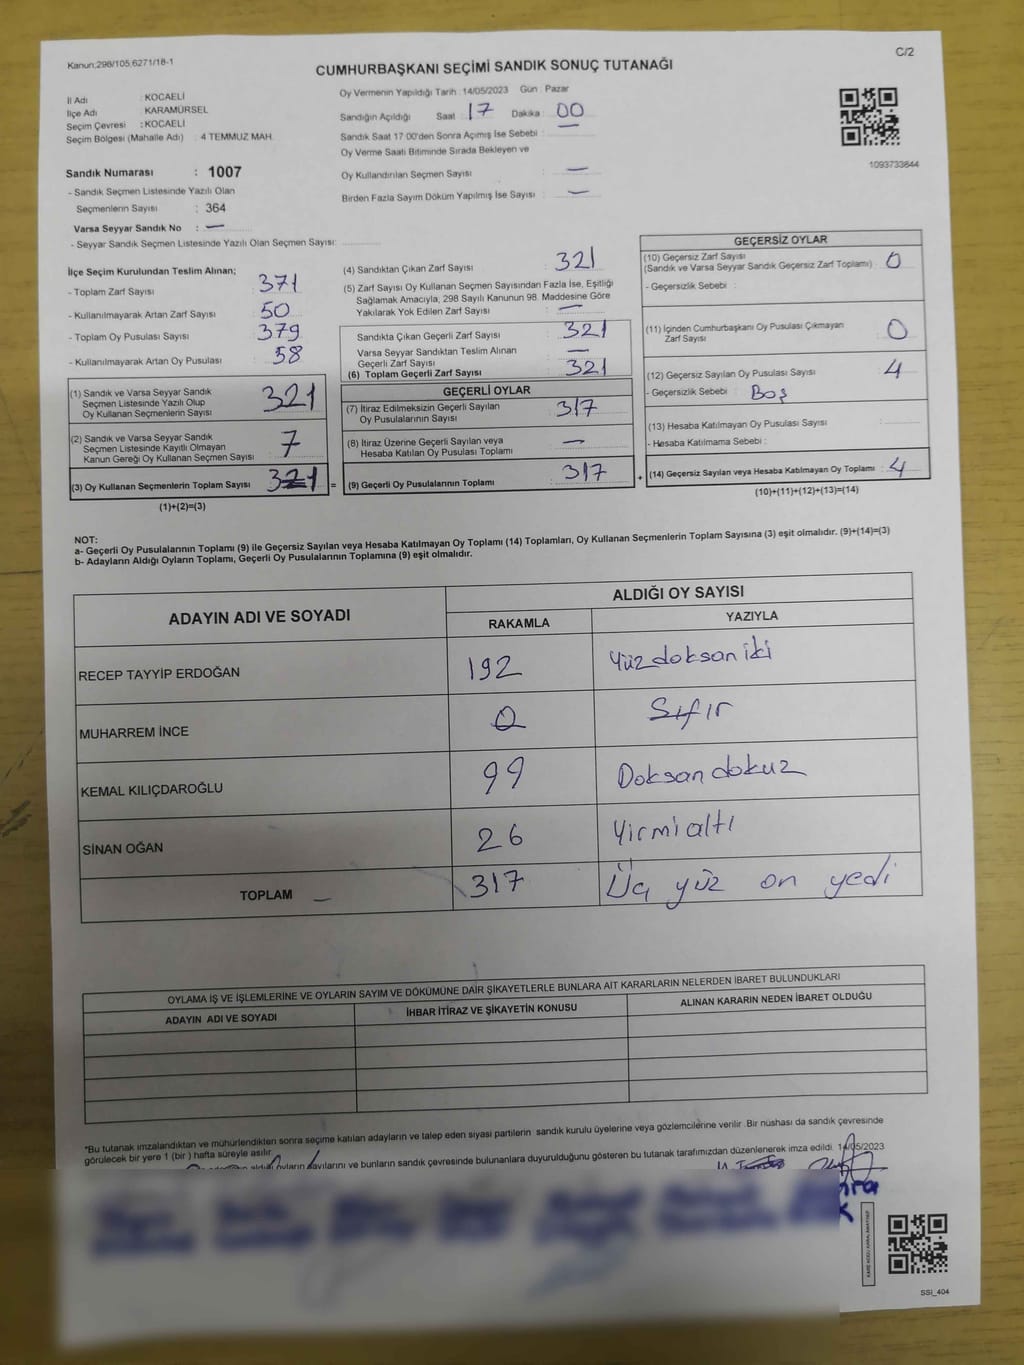 Kanun:298/105,6271/18-1
C/2
CUMHURBAŞKANI SEÇİMİ SANDIK SONUÇ TUTANAĞI
İl Adı : KOCAELİ
İlçe Adı : KARAMÜRSEL
Seçim Çevresi : KOCAELİ
Seçim Bölgesi (Mahalle Adı) : 4 TEMMUZ MAH.
Oy Vermenin Yapıldığı Tarih : 14/05/2023 Gün : Pazar
Sandığın Açıldığı Saat : 17 Dakika : 00
Sandık Saat 17:00'den Sonra Açımış İse Sebebi : —
Oy Verme Saati Bitiminde Sırada Bekleyen ve
Oy Kullandırılan Seçmen Sayısı : —
Birden Fazla Sayım Döküm Yapılmış İse Sayısı : —
1093733844
Sandık Numarası : 1007
- Sandık Seçmen Listesinde Yazılı Olan
Seçmenlerin Sayısı : 364
Varsa Seyyar Sandık No : —
- Seyyar Sandık Seçmen Listesinde Yazılı Olan Seçmen Sayısı:
İlçe Seçim Kurulundan Teslim Alınan;
- Toplam Zarf Sayısı : 371
- Kullanılmayarak Artan Zarf Sayısı : 50
- Toplam Oy Pusulası Sayısı : 379
- Kullanılmayarak Artan Oy Pusulası : 58
(1) Sandık ve Varsa Seyyar Sandık
Seçmen Listesinde Yazılı Olup
Oy Kullanan Seçmenlerin Sayısı : 321
(2) Sandık ve Varsa Seyyar Sandık
Seçmen Listesinde Kayıtlı Olmayan
Kanun Gereği Oy Kullanan Seçmen Sayısı : 7
(3) Oy Kullanan Seçmenlerin Toplam Sayısı : 321 =
(1)+(2)=(3)
(4) Sandıktan Çıkan Zarf Sayısı : 321
(5) Zarf Sayısı Oy Kullanan Seçmen Sayısından Fazla İse, Eşitliği
Sağlamak Amacıyla, 298 Sayılı Kanunun 98. Maddesine Göre
Yakılarak Yok Edilen Zarf Sayısı : —
Sandıkta Çıkan Geçerli Zarf Sayısı : 321
Varsa Seyyar Sandıktan Teslim Alınan
Geçerli Zarf Sayısı : —
(6) Toplam Geçerli Zarf Sayısı : 321
GEÇERLİ OYLAR
(7) İtiraz Edilmeksizin Geçerli Sayılan
Oy Pusulalarının Sayısı : 317
(8) İtiraz Üzerine Geçerli Sayılan veya
Hesaba Katılan Oy Pusulası Toplamı : —
(9) Geçerli Oy Pusulalarının Toplamı : 317 +
GEÇERSİZ OYLAR
(10) Geçersiz Zarf Sayısı
(Sandık ve Varsa Seyyar Sandık Geçersiz Zarf Toplamı) : 0
- Geçersizlik Sebebi :
(11) İçinden Cumhurbaşkanı Oy Pusulası Çıkmayan
Zarf Sayısı : 0
(12) Geçersiz Sayılan Oy Pusulası Sayısı : 4
- Geçersizlik Sebebi : Boş
(13) Hesaba Katılmayan Oy Pusulası Sayısı :
- Hesaba Katılmama Sebebi :
(14) Geçersiz Sayılan veya Hesaba Katılmayan Oy Toplamı : 4
(10)+(11)+(12)+(13)=(14)
NOT:
a- Geçerli Oy Pusulalarının Toplamı (9) ile Geçersiz Sayılan veya Hesaba Katılmayan Oy Toplamı (14) Toplamları, Oy Kullanan Seçmenlerin Toplam Sayısına (3) eşit olmalıdır. (9)+(14)=(3)
b- Adayların Aldığı Oyların Toplamı, Geçerli Oy Pusulalarının Toplamına (9) eşit olmalıdır.
ADAYIN ADI VE SOYADI ALDIĞI OY SAYISI
RAKAMLA YAZIYLA
RECEP TAYYİP ERDOĞAN 192 Yüzdoksaniki
MUHARREM İNCE 0 Sıfır
KEMAL KILIÇDAROĞLU 99 Doksandokuz
SİNAN OĞAN 26 Yirmialtı
TOPLAM — 317 Üç yüz on yedi
OYLAMA İŞ VE İŞLEMLERİNE VE OYLARIN SAYIM VE DÖKÜMÜNE DAİR ŞİKAYETLERLE BUNLARA AİT KARARLARIN NELERDEN İBARET BULUNDUKLARI
ADAYIN ADI VE SOYADI İHBAR İTİRAZ VE ŞİKAYETİN KONUSU ALINAN KARARIN NEDEN İBARET OLDUĞU
*Bu tutanak imzalandıktan ve mühürlendikten sonra seçime katılan adayların ve talep eden siyasi partilerin sandık kurulu üyelerine veya gözlemcilerine verilir. Bir nüshası da sandık çevresinde
görülecek bir yere 1 (bir ) hafta süreyle asılır.
aldığı oyların sayılarını ve bunların sandık çevresinde bulunanlara duyurulduğunu gösteren bu tutanak tarafımızdan düzenlenerek imza edildi. 14/05/2023
SSİ_404